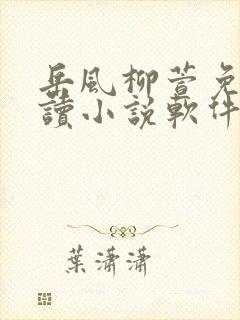 岳風柳萱免
讀小說軟件
葉瀟瀟